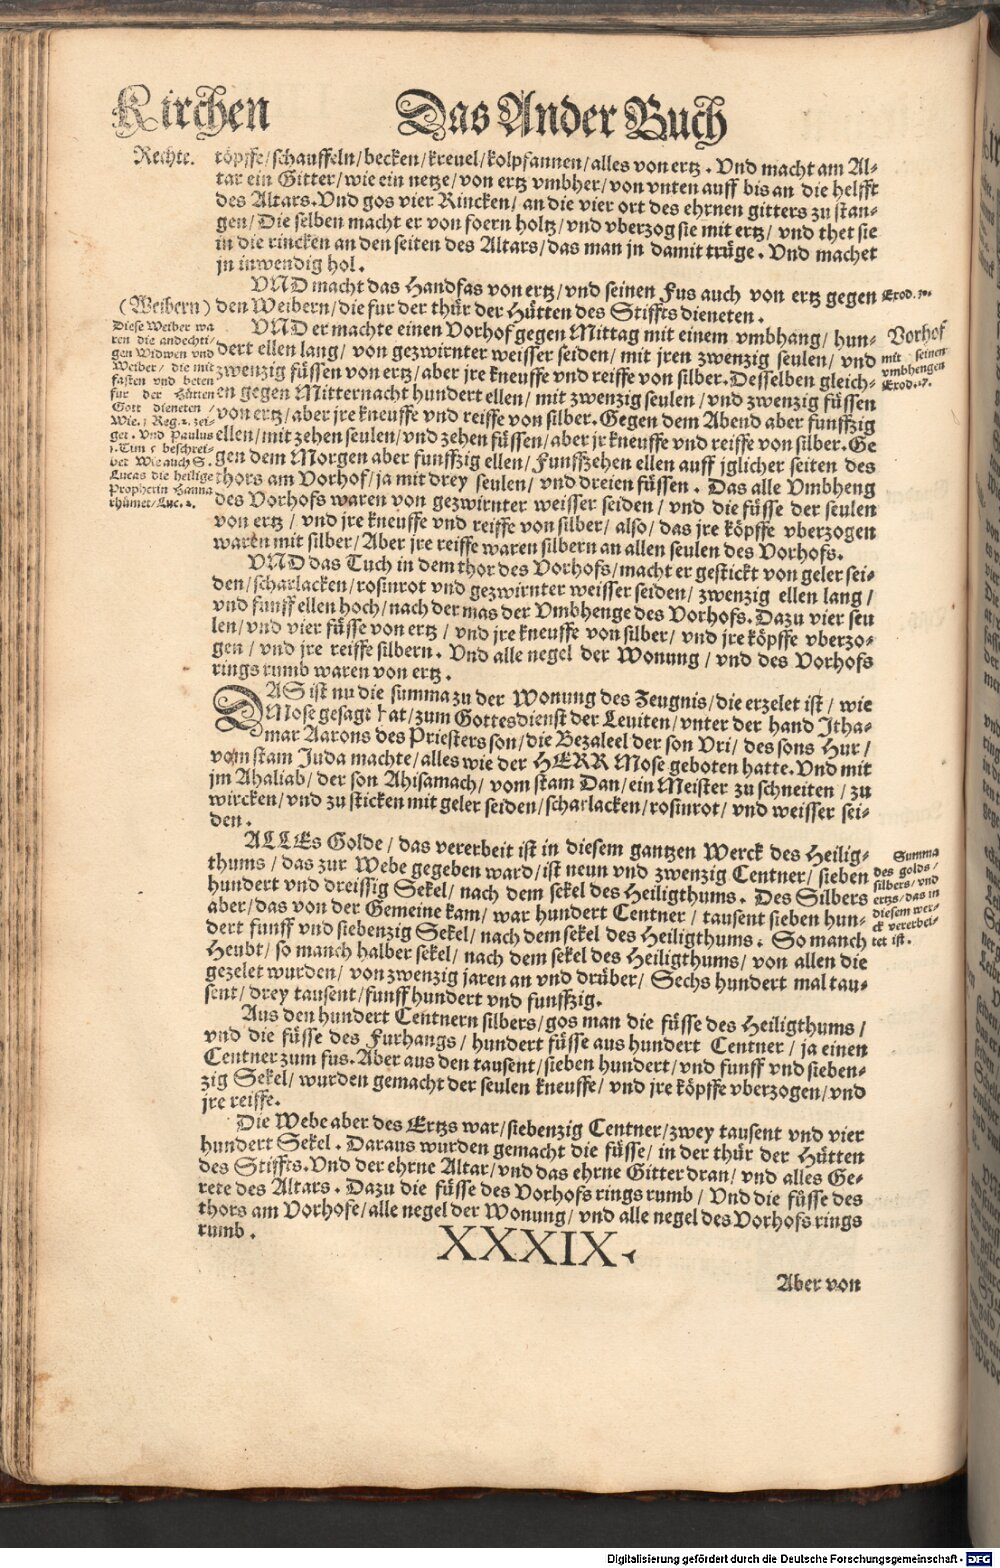 Kirchen
Das Ander Buch
Rechte.
töpffe/schauffeln/becken/kreuel/kolpfannen/alles von ertz. Vnd macht am Al-
tar ein Gitter/wie ein netze/von ertz vmbher/von vnten auff bis an die helfft
des Altars. Vnd gos vier Rincken/an die vier ort des ehrnen gitters zu stan-
gen/Die selben macht er von foern holtz/vnd vberzog sie mit ertz/vnd thet sie
in die rincken an den seiten des Altars/das man jn damit trüge. Vnd machet
jn inwendig hol.
VND macht das Handfas von ertz/vnd seinen Fus auch von ertz gegen
den Weibern/die fur der thür der Hütten des Stiffts dieneten.
Exod. 30.
(Weibern)
Diese Weiber wa
ren die andechti-
gen Widwen vnd
Weiber/die mit
fasten vnd beten
fur der Hütten
Gott dieneten/
Wie. 1 Reg. 2. zei-
get. Vnd Paulus
1. Tim 5 beschrei-
bet Wie auch S.
Lucas die heilige
Prophetin Hanna
rhümet/Luc. 2.
VND er machte einen Vorhof gegen Mittag mit einem vmbhang/hun-
dert ellen lang/von gezwirnter weisser seiden/mit jren zwenzig seulen/vnd
zwenzig füssen von ertz/aber jre kneuffe vnd reiffe von silber. Desselben gleich-
en gegen Mitternacht hundert ellen/mit zwenzig seulen/vnd zwenzig füssen
von ertz/aber jre kneuffe vnd reiffe von silber. Gegen dem Abend aber funffzig
ellen/mit zehen seulen/vnd zehen füssen/aber jr kneuffe vnd reiffe von silber. Ge
gen dem Morgen aber funffzig ellen/Funffzehen ellen auff jglicher seiten des
thors am Vorhof/ja mit drey seulen/vnd dreien füssen. Das alle Vmbheng
des Vorhofs waren von gezwirnter weisser seiden/vnd die füsse der seulen
von ertz/vnd jre kneuffe vnd reiffe von silber/also/das jre köpffe vberzogen
waren mit silber/Aber jre reiffe waren silbern an allen seulen des Vorhofs.
Vorhof
mit seinen
vmbhengen
Exod. 27.
VND das Tuch in dem thor des Vorhofs/macht er gestickt von geler sei-
den/scharlacken/rosinrot vnd gezwirnter weisser seiden/zwenzig ellen lang/
vnd funff ellen hoch/nach der mas der Vmbhenge des Vorhofs. Dazu vier seu
len/vnd vier füsse von ertz/vnd jre kneuffe von silber/vnd jre köpffe vberzo-
gen/vnd jre reiffe silbern. Vnd alle negel der Wonung/vnd des Vorhofs
rings rumb waren von ertz.
DAS ist nu die summa zu der Wonung des Zeugnis/die erzelet ist/wie
Mose gesagt hat/zum Gottesdienst der Leuiten/vnter der hand Itha-
mar Aarons des Priesters son/die Bezaleel der son Vri/des sons Hur/
vom stam Juda machte/alles wie der HERR Mose geboten hatte. Vnd mit
jm Ahaliab/der son Ahisamach/vom stam Dan/ein Meister zu schneiten/zu
wircken/vnd zu sticken mit geler seiden/scharlacken/rosinrot/vnd weisser sei-
den.
ALLEs Golde/das vererbeit ist in diesem gantzen Werck des Heilig-
thums/das zur Webe gegeben ward/ist neun vnd zwenzig Centner/sieben
hundert vnd dreissig Sekel/nach dem sekel des Heiligthums. Des Silbers
aber/das von der Gemeine kam/war hundert Centner/tausent sieben hun-
dert funff vnd siebenzig Sekel/nach dem sekel des Heiligthums. So manch
Heubt/so manch halber sekel/nach dem sekel des Heiligthums/von allen die
gezelet wurden/von zwenzig jaren an vnd drüber/Sechs hundert mal tau-
sent/drey tausent/funff hundert vnd funffzig.
Summa
des golds/
silbers/vnd
ertzs/das in
diesem wer-
ck vererbei-
tet ist.
Aus den hundert Centnern silbers/gos man die füsse des Heiligthums/
vnd die füsse des Furhangs/hundert füsse aus hundert Centner/ja einen
Centner zum fus. Aber aus den tausent/sieben hundert/vnd funff vnd sieben-
zig Sekel/wurden gemacht der seulen kneuffe/vnd jre köpffe vberzogen/vnd
jre reiffe.
Die Webe aber des Ertzs war/siebenzig Centner/zwey tausent vnd vier
hundert Sekel. Daraus wurden gemacht die füsse/in der thür der Hütten
des Stiffts. Vnd der ehrne Altar/vnd das ehrne Gitter dran/vnd alles Ge-
rete des Altars. Dazu die füsse des Vorhofs rings rumb/Vnd die füsse des
thors am Vorhofe/alle negel der Wonung/vnd alle negel des Vorhofs rings
rumb.
XXXIX.
Aber von
Digitalisierung gefördert durch die Deutsche Forschungsgemeinschaft - DFG